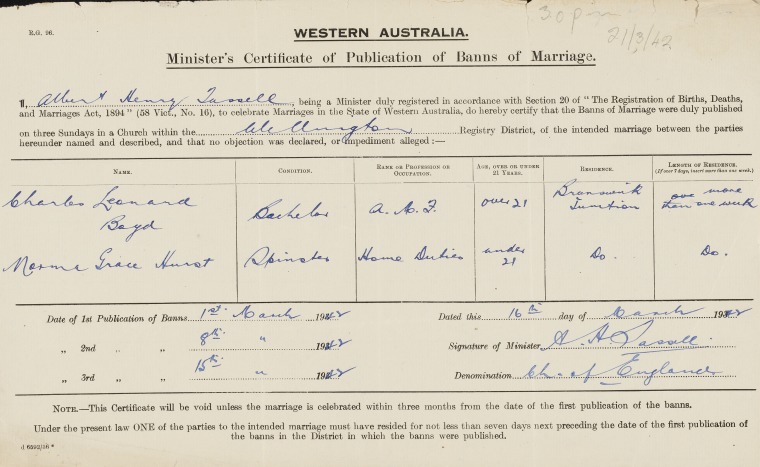 R.G. 96.
30 p
21/3/42
WESTERN AUSTRALIA.
Minister's Certificate of Publication of Banns of Marriage.
I, Albert Henry Tassell, being a Minister duly registered in accordance with Section 20 of "The Registration of Births, Deaths,
and Marriages Act, 1894" (58 Vict., No. 16), to celebrate Marriages in the State of Western Australia, do hereby certify that the Banns of Marriage were duly published
on three Sundays in a Church within the Wellington Registry District, of the intended marriage between the parties
hereunder named and described, and that no objection was declared, or impediment alleged:—
NAME. CONDITION. RANK OR PROFESSION OR OCCUPATION. AGE, OVER OR UNDER 21 YEARS. RESIDENCE. LENGTH OF RESIDENCE. (If over 7 days, insert more than one week.)
Charles Leonard Boyd Bachelor A.M.F. over 21 Brunswick Junction one more than one week
Norma Grace Hurst Spinster Home Duties under 21 Do. Do.
Date of 1st Publication of Banns 1st March 1942 Dated this 16th day of March 1942
„ 2nd „ „ 8th „ 1942 Signature of Minister A H Tassell
„ 3rd „ „ 15th „ 1942 Denomination Ch. of England
NOTE.—This Certificate will be void unless the marriage is celebrated within three months from the date of the first publication of the banns.
Under the present law ONE of the parties to the intended marriage must have resided for not less than seven days next preceding the date of the first publication of
the banns in the District in which the banns were published.